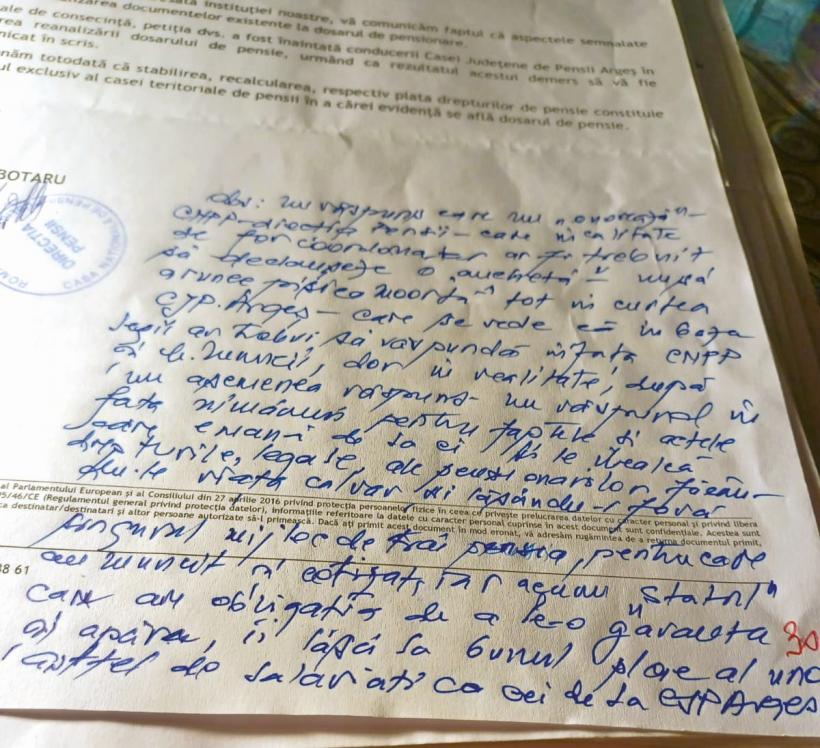 zarea documentelor existente la dosarul de pensionare. instituției noastre, vă comunicăm faptul că aspectele semnalate
ale de consecință, petiția dvs. a fost înaintată conducerii Casei Județene de Pensii Argeș în
rea reanalizării dosarului de pensie, urmând ca rezultatul acestui demers să vă fie
nicat în scris.
năm totodată că stabilirea, recalcularea, respectiv plata drepturilor de pensie constituie
ul exclusiv al casei teritoriale de pensii în a cărei evidență se află dosarul de pensie.
BOTARU
DIRECTIA
PENSII
CASA NATIONALA DE PENSII
Obs: un răspuns care nu "onorează"
CNPP-direcția Pensii - care în calitate
de for coordonator ar fi trebuit
să declanșeze o "anchetă" - nu să
arunce "pisica moartă" tot în curtea
CJP. Argeș - care se vede că în baza
legii ar trebui să răspundă în fața CNPP
și M. Muncii, dar în realitate, după
un asemenea răspuns nu răspund în
fața nimănui pentru faptele și actele
care emană de la ei și le încalcă
drepturile, legale, ale pensionarilor, făcân-
du-le viața calvar și lăsându-i fără
al Parlamentului European și al Consiliului din 27 aprilie 2016 privind protecția persoanelor fizice în ceea ce privește prelucrarea datelor cu caracter personal și privind libera
95/46/CE (Regulamentul general privind protecția datelor), informațiile referitoare la datele cu caracter personal cuprinse în acest document sunt confidențiale. Acestea sunt
destinatar/destinatari și altor persoane autorizate să-l primească. Dacă ați primit acest document în mod eronat, vă adresăm rugămintea de a returna documentul primit,
singurul mijloc de trai pensia, pentru care
8 61
au muncit și cotizat, iar acum "Statul"
care are obligația de a le-o garanta 30
și apăra, îi lasă la bunul plac al uno
astfel de salariați ca cei de la CJP Argeș